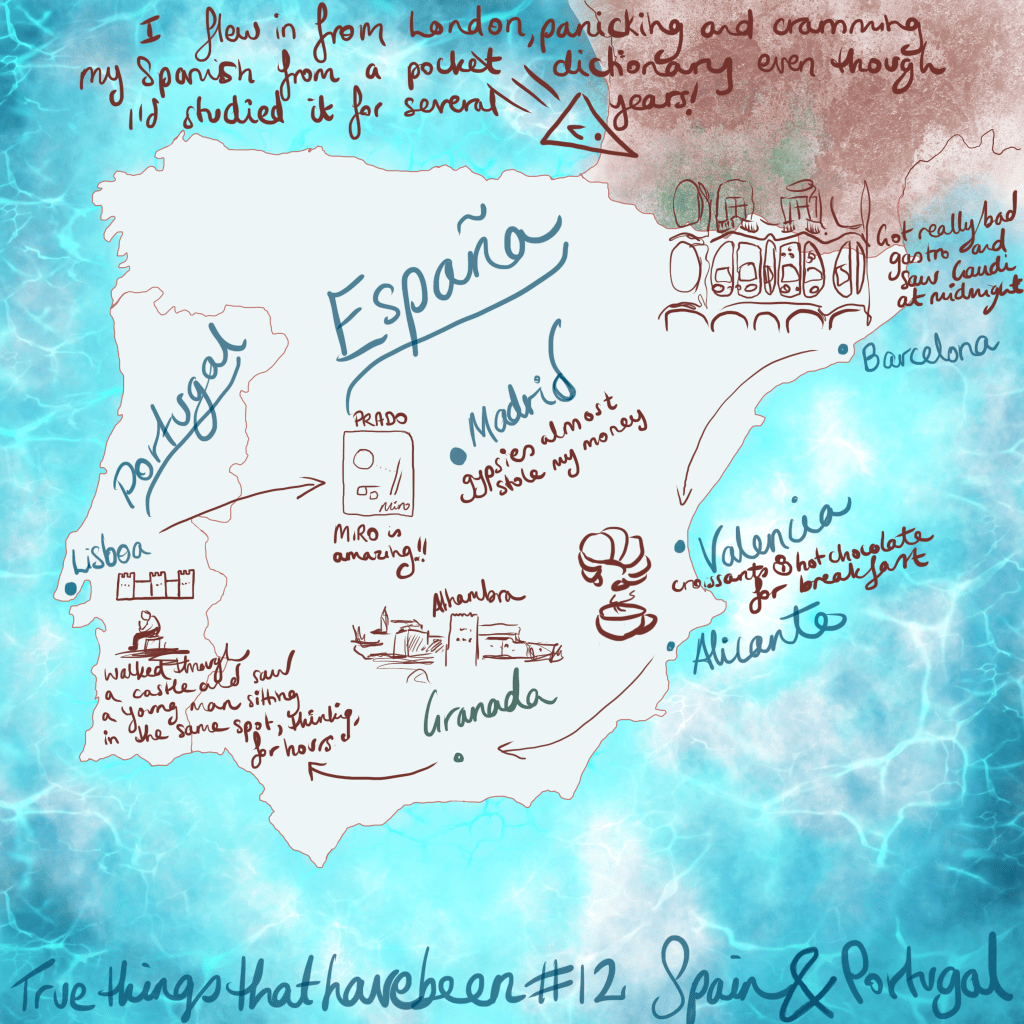 I flew in from London, panicking and cramming
my Spanish from a pocket dictionary even though
I'd studied it for several years!
Got really bad
gastro and
saw Gaudi
at midnight
España
Barcelona
Portugal
Madrid
gypsies almost
stole my money
PRADO
Miro
MIRO is
amazing!!
Valencia
croissants & hot chocolate
for breakfast
Lisboa
Alhambra
Alicante
walked through
a castle and saw
a young man sitting
in the same spot, thinking,
for hours
Granada
True things that have been #12 Spain & Portugal